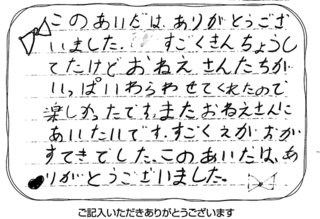 このあいだは、ありがとうござ
いました。すごくきんちょうし
てたけどおねえさんたちが
いっぱいわらわせてくれたので
楽しかったです。またおねえさんに
あいたいです。すごくえがおが
すてきでした。このあいだは、あ
りがとうございました。
ご記入いただきありがとうございます